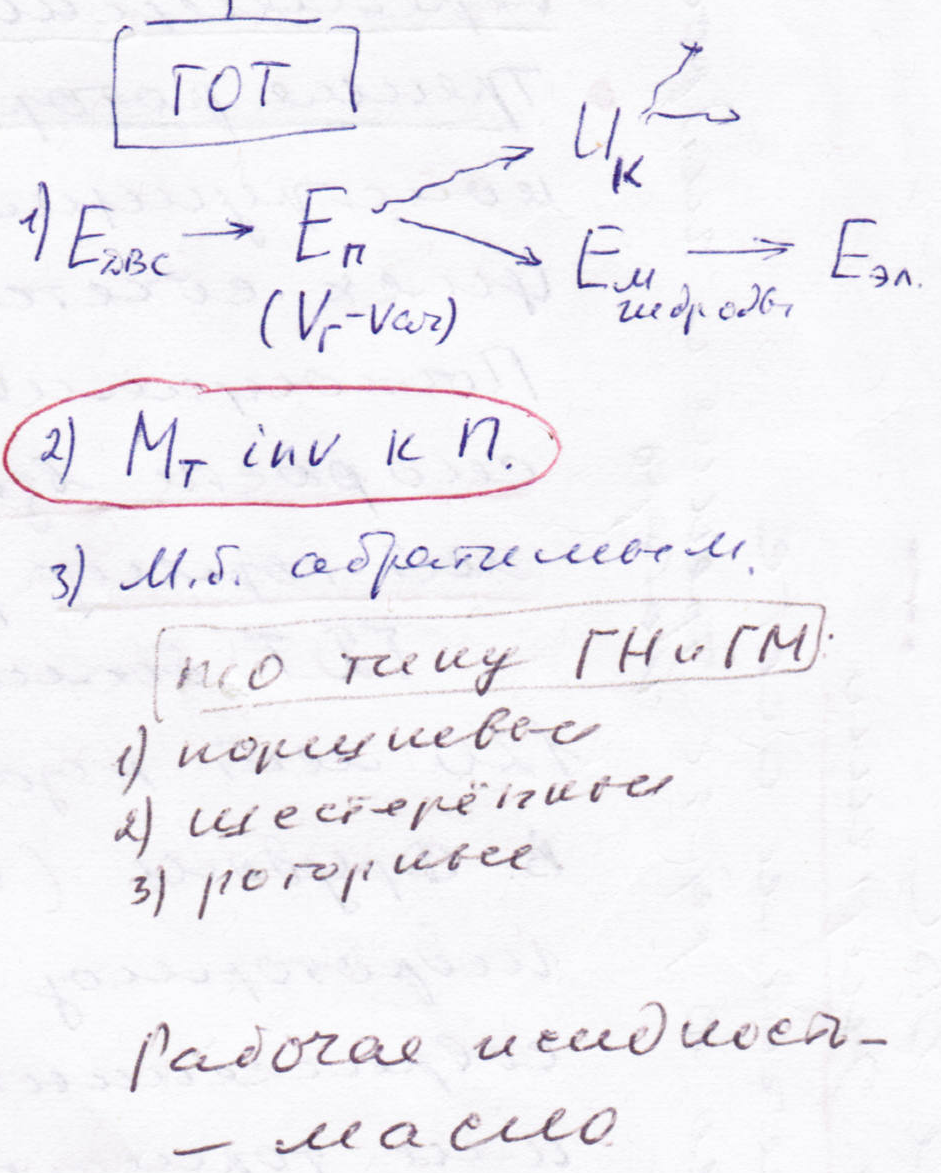 ГОТ
1) Eдвс → Eп → Uк
Eм → Eэл.
(Vг-var) гидродв.
2) Mт inv к П.
3) М.б. обратимым.
по типу ГН и ГМ:
1) поршневые
2) шестерённые
3) роторные
Рабочая жидкость –
– масло